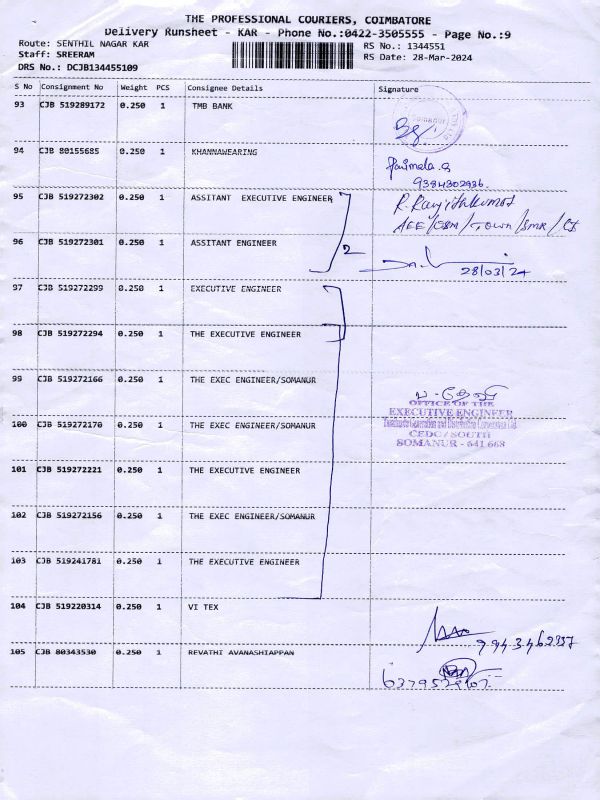 THE PROFESSIONAL COURIERS, COIMBATORE
Delivery Runsheet - KAR - Phone No.:0422-3505555 - Page No.:9
Route: SENTHIL NAGAR KAR
RS No.: 1344551
Staff: SREERAM
RS Date: 28-Mar-2024
DRS No.: DCJB134455109
S No Consignment No Weight PCS Consignee Details Signature
93 CJB 519289172 0.250 1 TMB BANK
94 CJB 80155685 0.250 1 KHANNAWEARING
9384302936.
95 CJB 519272302 0.250 1 ASSITANT EXECUTIVE ENGINEER
96 CJB 519272301 0.250 1 ASSITANT ENGINEER
2
28/03/24
97 CJB 519272299 0.250 1 EXECUTIVE ENGINEER
98 CJB 519272294 0.250 1 THE EXECUTIVE ENGINEER
99 CJB 519272166 0.250 1 THE EXEC ENGINEER/SOMANUR
OFFICE OF THE
EXECUTIVE ENGINEER
CEDC/SOUTH
SOMANUR - 641 668
100 CJB 519272170 0.250 1 THE EXEC ENGINEER/SOMANUR
101 CJB 519272221 0.250 1 THE EXECUTIVE ENGINEER
102 CJB 519272156 0.250 1 THE EXEC ENGINEER/SOMANUR
103 CJB 519241781 0.250 1 THE EXECUTIVE ENGINEER
104 CJB 519220314 0.250 1 VI TEX
105 CJB 80343530 0.250 1 REVATHI AVANASHIAPPAN